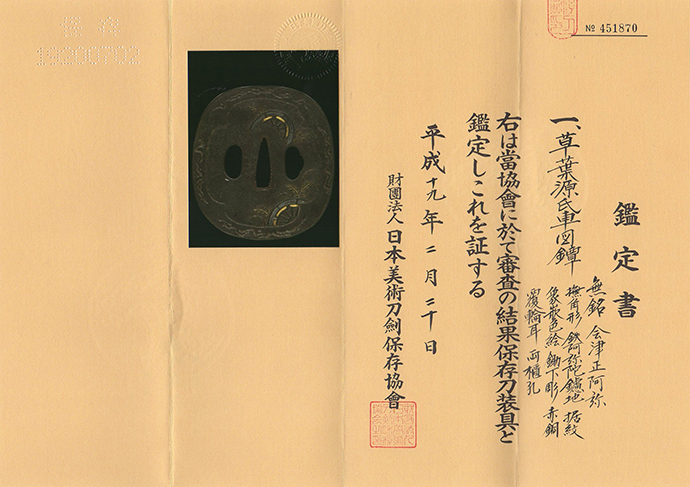 № 451870
鑑定書
一、草葉源氏車図鐔
無銘 会津正阿弥
撫角形 鉄阿弥陀鑢地 据紋
象嵌色絵 鋤下彫 赤銅
覆輪耳 両櫃孔
右は當協會に於て審査の結果保存刀装具と
鑑定しこれを証する
平成十九年二月二十日
財團法人 日本美術刀劍保存協會
19200702